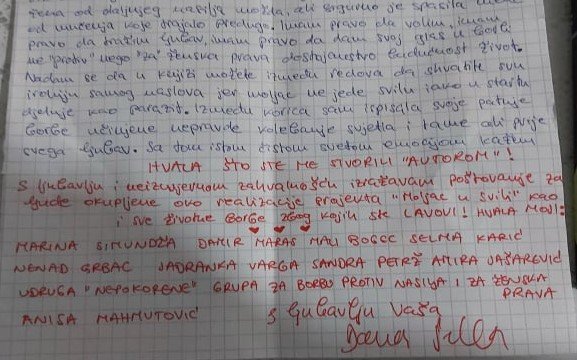 žena od daljnjeg nasilja možda, ali sigurno je spasila mene
od mučenja koje trajalo predugo. Imam pravo da volim, imam
pravo da tražim ljubav, imam pravo da dam svoj glas u borbi
ne "protiv" nego "za" ženska prava dostojanstvo budućnost život.
Nadam se da u knjizi možete između redova da shvatite svu
ironiju samog naslova jer moljac ne jede svilu iako u startu
djeluje kao parazit. Između korica sam ispisala svoje patnje
borbe učinjene nepravde svjetla i tame ali prije
svega ljubav. Sa tom istom čistom svetom emocijom kažem
HVALA ŠTO STE ME STVORILI "AUTOROM"!
S ljubavlju i neizmjernom zahvalnošću izražavam poštovanje za
ljude okupljene oko realizacije projekta "Moljac u svili" kao
i sve životne borbe zbog kojih ste LAVOVI! HVALA MOJI:
MARINA SIMUNDŽA DAMIR MARAS MALI BOGEC SELMA KARIĆ
NENAD GRBAC JADRANKA VARGA SANDRA PETRŽ AMIRA JAŠAREVIĆ
UDRUGA "NEPOKORENE" GRUPA ZA BORBU PROTIV NASILJA I ZA ŽENSKA
PRAVA
ANISA MAHMUTOVIĆ S ljubavlju Vaša